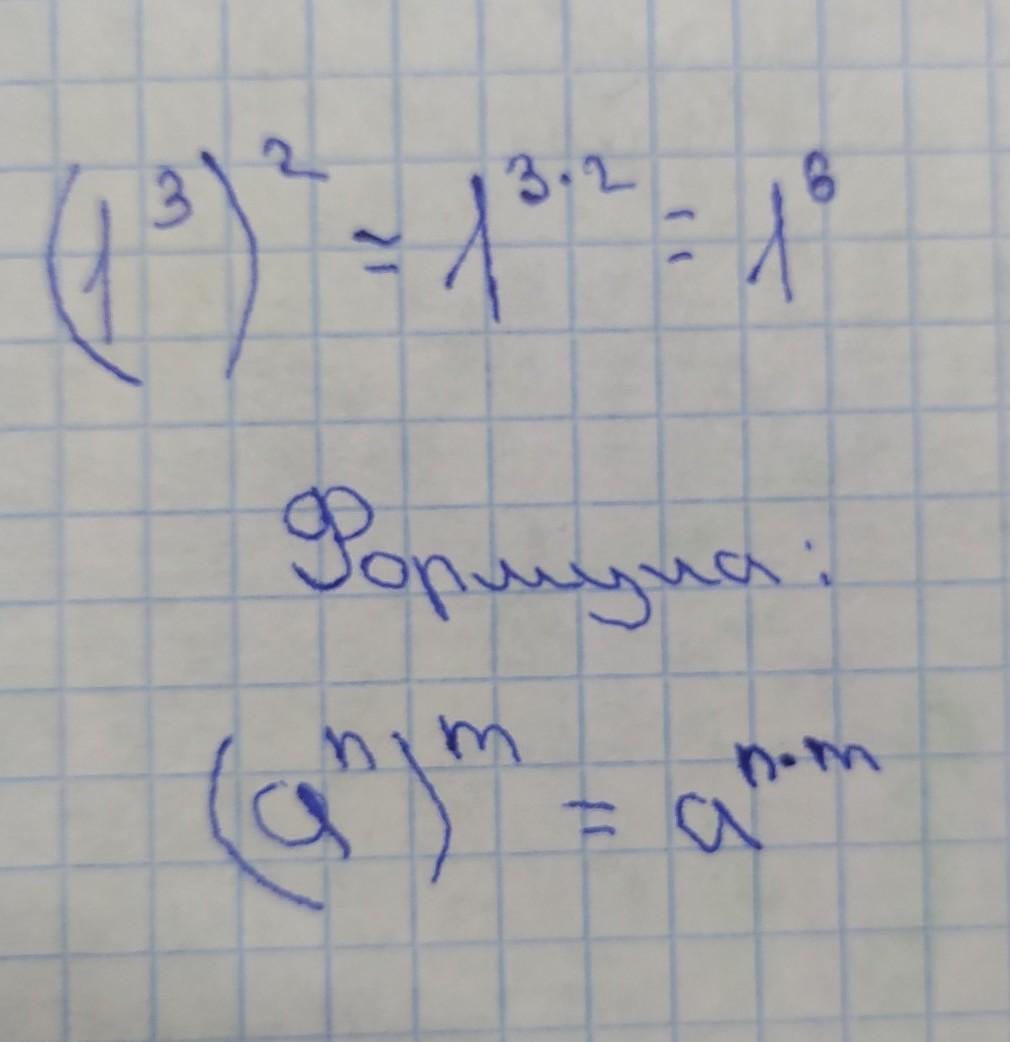 (1³)² = 1³·² = 1⁶
Формула:
(aⁿ)ᵐ = aⁿ·ᵐ